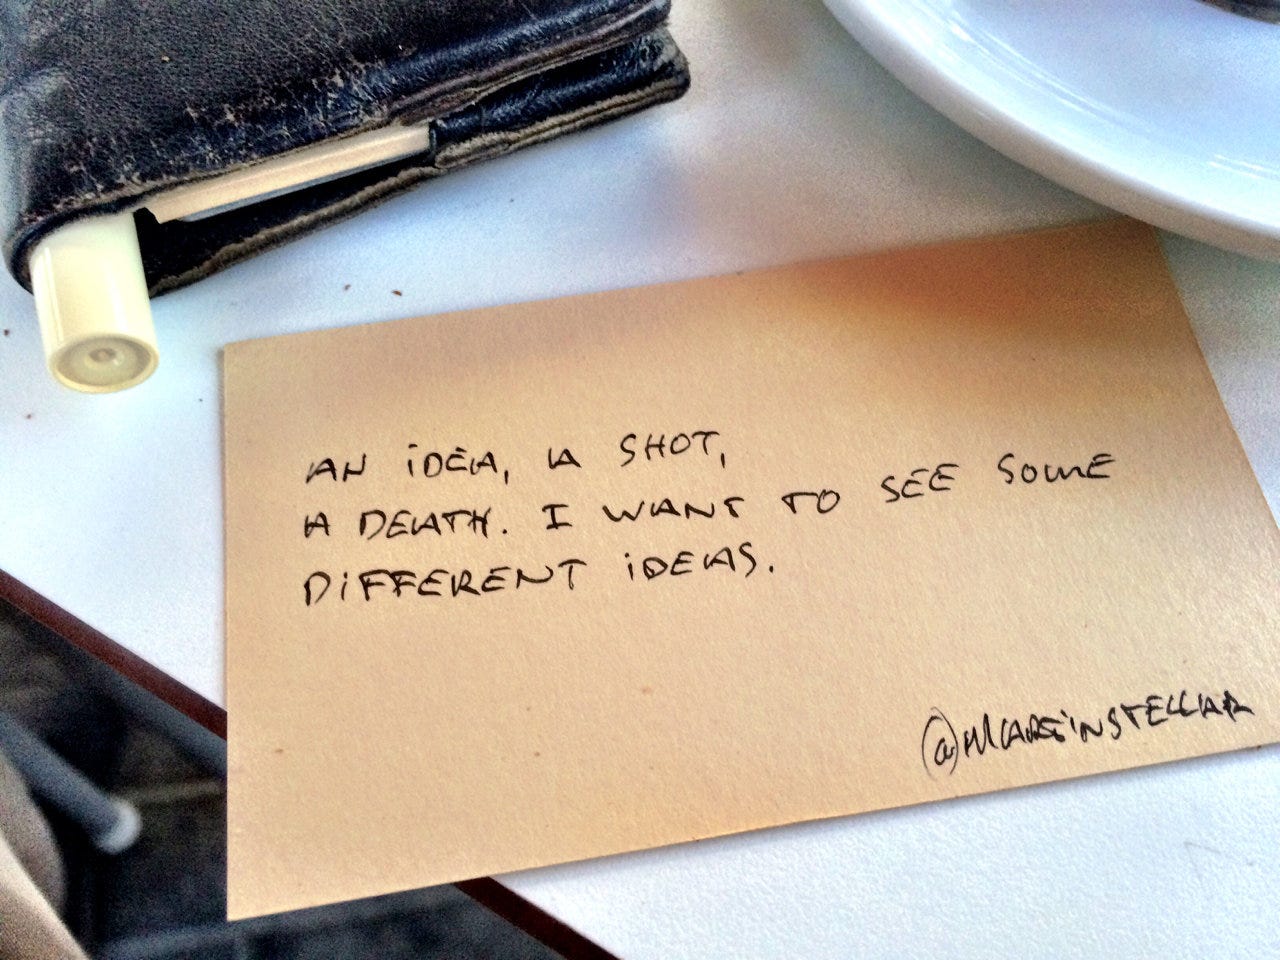 AN iDEA, A SHOT,
A DEATH. I WANT TO SEE SOME
DiFFERENT iDEAS.
@MARTiNSTELLAR